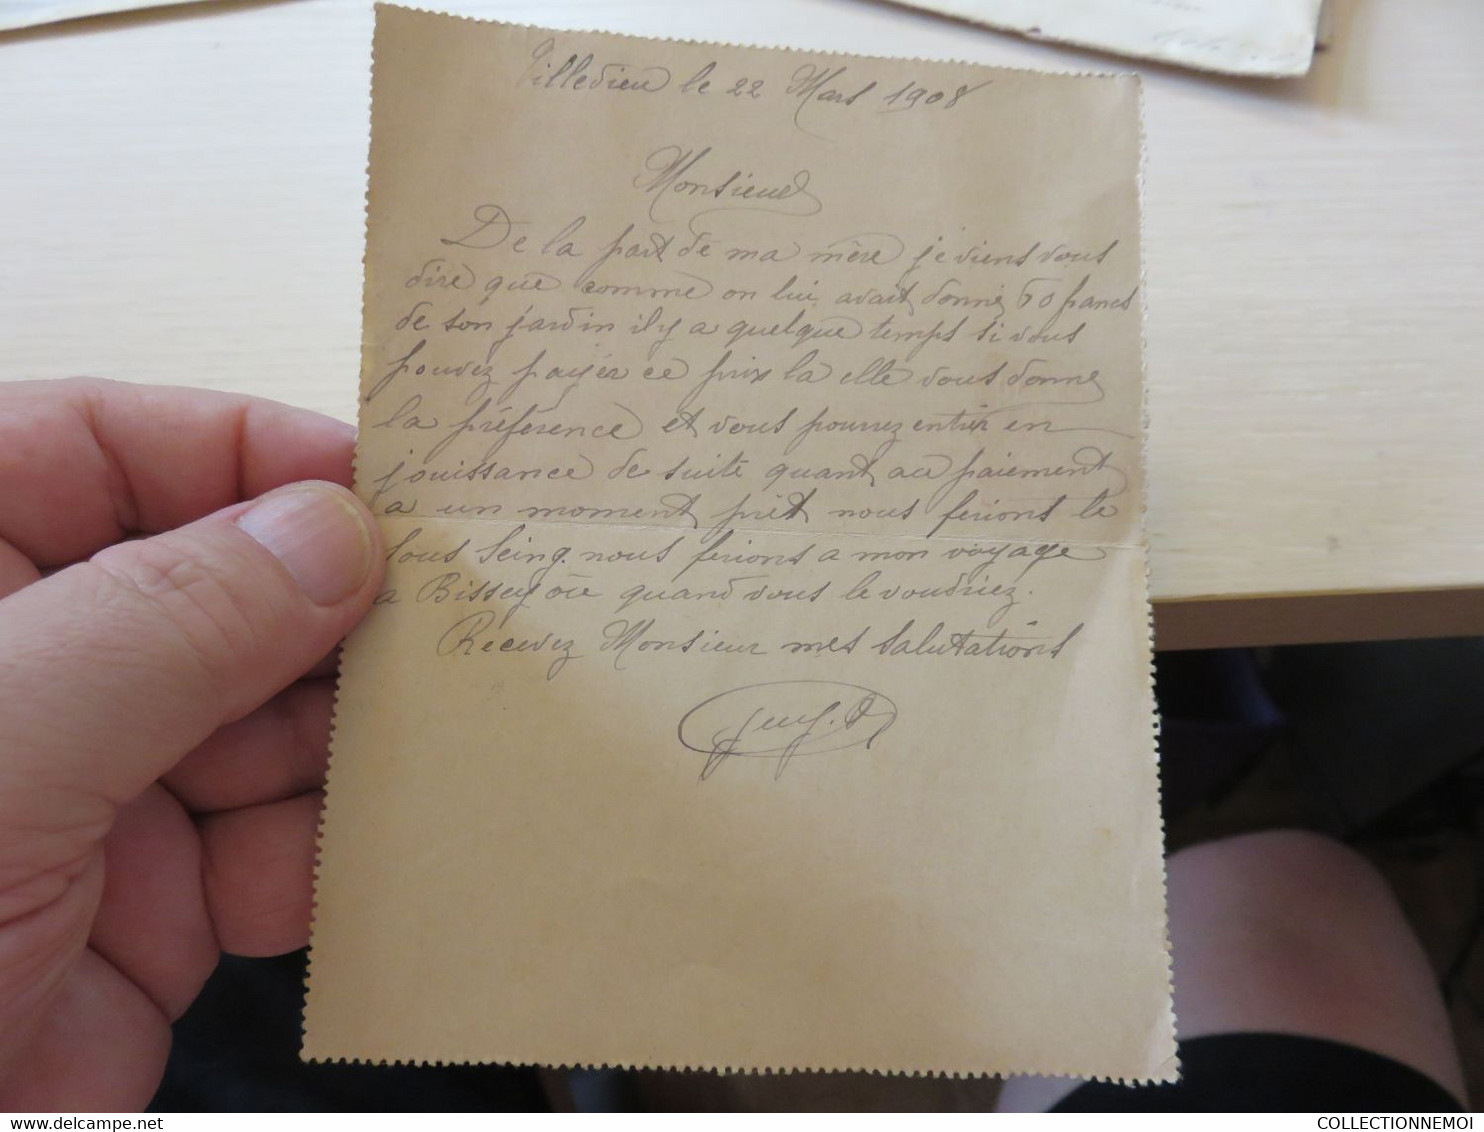 Villedieu le 22 Mars 1908
Monsieur
De la part de ma mère je viens vous
dire que comme on lui avait donné 60 francs
de son jardin il y a quelque temps si vous
pouvez payer ce prix la elle vous donne
la préférence et vous pourrez entrer en
jouissance de suite quant au paiement
a un moment prèt nous ferions le
sous seing. nous ferions a mon voyage
a Bissey ou quand vous le voudriez.
Recevez Monsieur mes salutations
COLLECTIONNEMOI